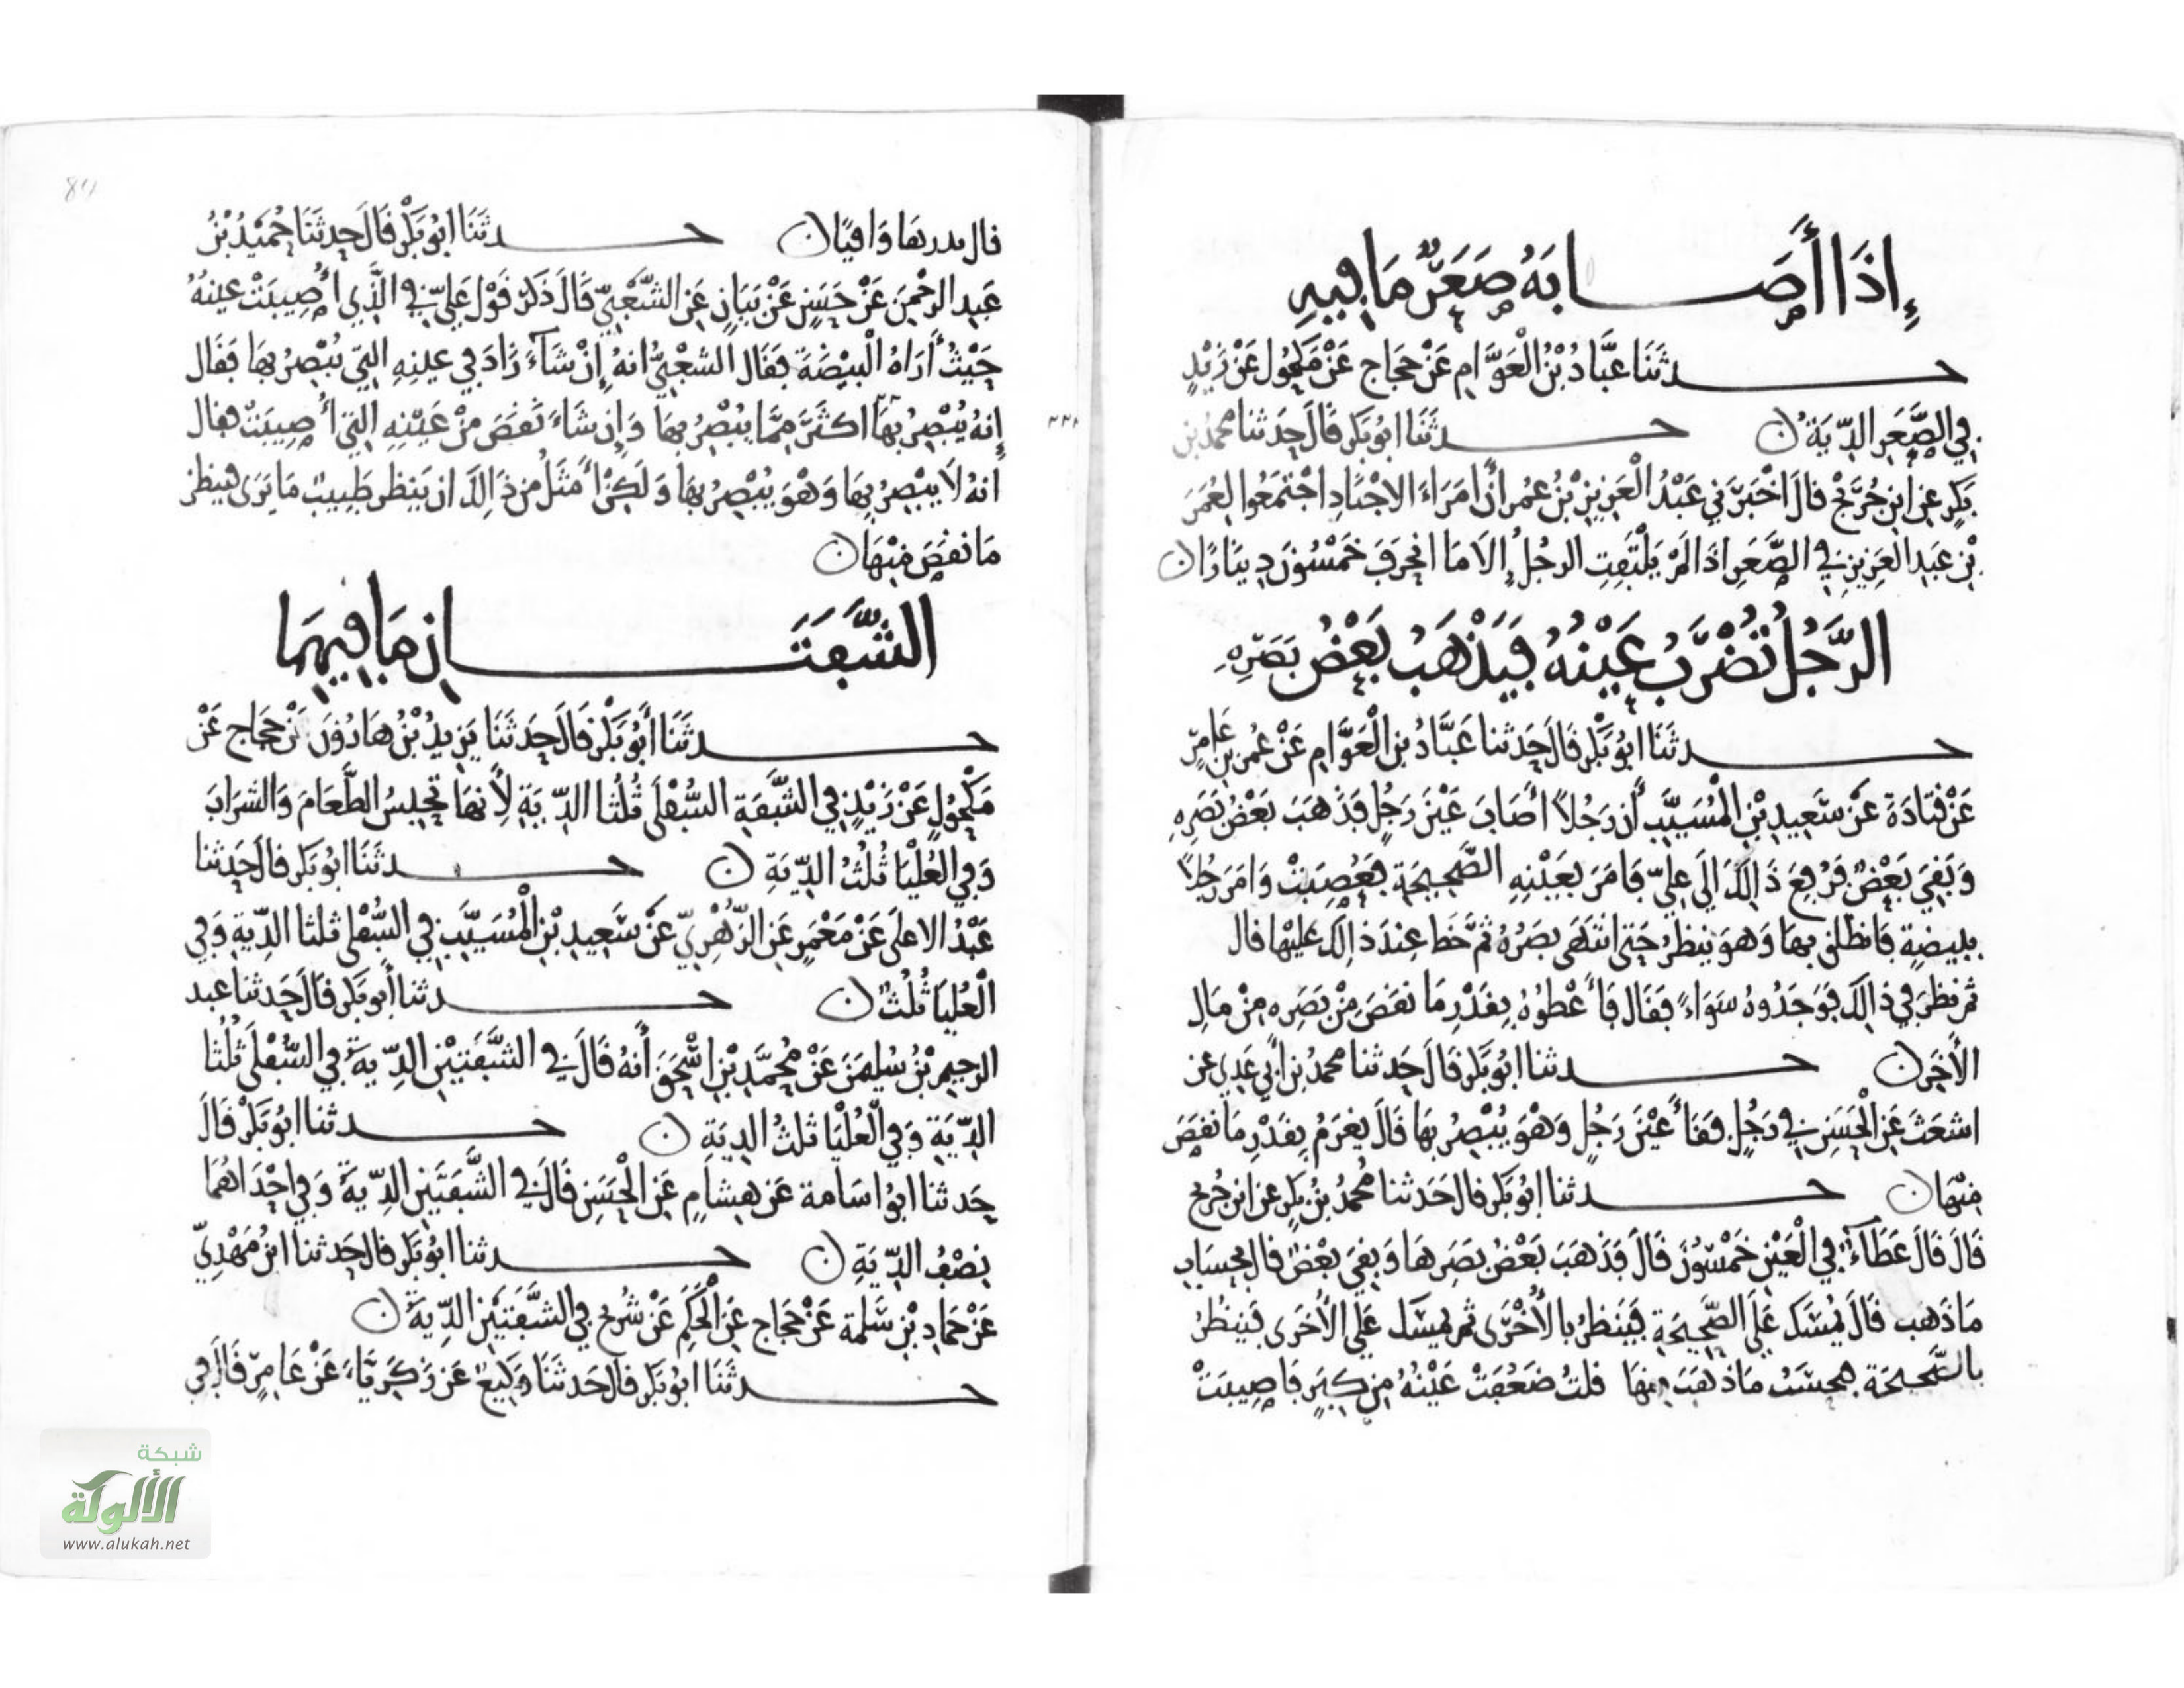 إِذَا أَصَابَهُ صَعَرٌ مَا فِيهِ
حدثَنَا عَبَّادُ بْنُ الْعَوَّامِ عَنْ حَجَاجٍ عَنْ مَكْحُولٍ عَنْ زَيْدٍ
فِي الصَّعَرِ الدِّيَةُ ن حدثَنَا ابُو بَكْرٍ قَالَ حَدثنا محمدُ بن
بَكْرٍ عن ابن جُرَيْجٍ قالَ اخْبَرَنِي عَبْدُ الْعَزِيزِ بْنُ عُمر أن امَرَاءَ الاجْنَادِ اجْتَمَعُوا لِعُمَرَ
بْنِ عَبدِ الْعَزِيزِ فِي الصَّعَرِ اذَا لَمْ يَلْتَفِتِ الرجُلُ إِلا مَا انْحَرَفَ خَمْسُونَ دِينَارًا ن
الرَّجُلُ تُضْرَبُ عَيْنُهُ فَيَذْهَبُ بَعْضُ بَصَرِهِ
حدثَنَا ابُو بَكْرٍ قَالَ حَدثنا عَبَّادُ بن الْعَوَّامِ عَنْ عُمر بنِ عَامِرٍ
عَنْ قتَادَةَ عَنْ سَعِيدِ بْنِ الْمُسَيَّبِ أن رَجُلًا أصَابَ عَيْنَ رَجُلٍ فَذَهَبَ بَعْضُ بَصَرِهِ
وَبَقِيَ بَعْضٌ فَرُفِعَ ذَالِكَ الَى عَلِيٍّ فَامَرَ بِعَيْنِهِ الصَّحِيحَةِ فَعُصِبَتْ وَامَرَ رَجُلًا
بِبيضةٍ فانطلق بِهَا وَهوَ ينظرُ حَتى انْتَهَى بَصَرُهُ ثمَّ خَط عِندَ ذالِك عَلمًا قال
ثم نظرَ فِي ذالِكَ فَوَجَدُوهُ سَوَاءً فَقَالَ فَأَعْطَوْهُ بِقَدْرِ مَا نقَصَ مِنْ بَصَرِهِ مِنْ مَالِ
الأَخَرِ ن حدثنا ابُو بَكْرٍ قَالَ حَدثنا محمدُ بن أبِي عَدِي عن
اشعَثَ عَنِ الْحَسَنِ فِي رَجُلٍ فَقَأَ عَيْنَ رَجُلٍ وَهْوَ يُبْصِرُ بِهَا قَالَ يَغرَمُ بِقَدْرِ مَا نقَصَ
مِنْهَا ن حدثنا ابُو بَكر قال حَدثنا مُحمدُ بْنُ بَكْرٍ عن ابن جُرَيج
قَالَ قَالَ عَطَاءٌ فِي الْعَيْنِ خَمْسُونَ قَالَ فَذَهَبَ بَعْضُ بَصَرِهَا وَبَقِيَ بَعْضٌ قال بِحِسَابِ
مَا ذَهَبَ قَالَ يُمْسَك عَلَى الصَّحِيحَةِ فَيَنظرُ بالأُخْرَى ثم يُمسَك عَلَى الأُخرَى فَيَنظُرُ
بالصَّحيحَةِ فيُحسَبُ مَا ذهَبَ مِنهَا قلتُ ضَعُفَتْ عَيْنُهُ مِن كِبَرٍ فَاصِيبَتْ
قال بدرها وَافِيًا ن حدثَنَا ابُو بَكْرٍ قَالَ حَدثَنَا حُمَيْدُ بْنُ
عَبدِ الرحْمنِ عَنْ حَسَنٍ عَنْ بَيَانٍ عَنِ الشَّعْبِيِّ قَالَ ذَكَرَ قَوْل عَلِيٍّ فِي الَّذِي أُصِيبَتْ عَينُهُ
حَيْثُ أَرَاهُ الْبَيْضَةَ فَقَالَ الشعْبِيُّ انهُ إِنْ شَاءَ زَادَ فِي عَينِهِ التِي يُبْصِرُ بِهَا فَقَال
إِنهُ يُبْصِرُ بِهَا اكثَرَ مِمَّا يُبْصِرُ بِهَا وَإِن شَاءَ نَقَصَ مِنْ عَيْنِهِ التِي أُصِيبَتْ فقال
انهُ لَا يُبْصِرُ بِهَا وَهْوَ يُبْصِرُ بِهَا وَلَكِن أَمْثَلُ مِن ذَالِكَ ان يَنظرَ طَبِيبٌ مَا يَرَى فينظر
مَا نقَصَ مِنْهَا ن
الشَّفَتَانِ مَا فِيهِمَا
حدثَنَا أَبُو بَكْرٍ قَالَ حَدثَنَا يَزِيدُ بْنُ هَارُونَ عَنْ حَجاجٍ عَنْ
مَكْحُولٍ عَنْ زَيْدٍ فِي الشَّفَةِ السُّفْلَى ثُلُثَا الدِّيَةِ لِأَنهَا تَحْبِسُ الطَّعَامَ وَالشرَابَ
وَفِي الْعُلْيَا ثُلُثُ الدِّيَةِ ن حدثَنَا ابُو بَكر قالَ حَدثنا
عَبْدُ الاعلَى عَنْ مَعْمَرٍ عَنِ الزُّهْرِيِّ عَنْ سَعِيدِ بْنِ الْمُسَيَّبِ فِي السُّفْلى ثلثا الدِّيةِ وَفِي
الْعُلْيَا ثُلُثٌ ن حدثنا أَبو بَكر قالَ حَدثنا عبد
الرحيمِ بْنُ سُلِيمَنَ عَنْ مُحمَّدِ بْنِ اسْحَقَ أنهُ قَالَ فِي الشَّفَتيْنِ الدِّيَةُ فِي السُّفْلَى ثُلُثا
الدِّيَةِ وَفِي الْعُلْيَا ثلثُ الديَةِ ن حدثنا ابو بَكْرٍ قَالَ
حَدثنا ابُو اسَامة عَن هِشامٍ عَنِ الْحَسَنِ قَالَ فِي الشَّفَتَيْنِ الدِّيةُ وَفِي احْدَاهُمَا
نِصْفُ الدِّيَةِ ن حدثنا ابُو بَكرٍ قال حَدثنا ابْنُ مَهْدِيٍّ
عَنْ حَمادِ بْنِ سَلمة عَنْ حَجاجٍ عَنِ الْحَكَمِ عَنْ شُرَيحٍ فِي الشفَتَيْنِ الدِّيةُ ن
حدثَنَا ابُو بَكر قالَ حَدثَنَا وَكِيعٌ عَن زَكَرِيَّاءَ عَنْ عَامِرٍ قَالَ فِي
شبكة
الألوكة
www.alukah.net